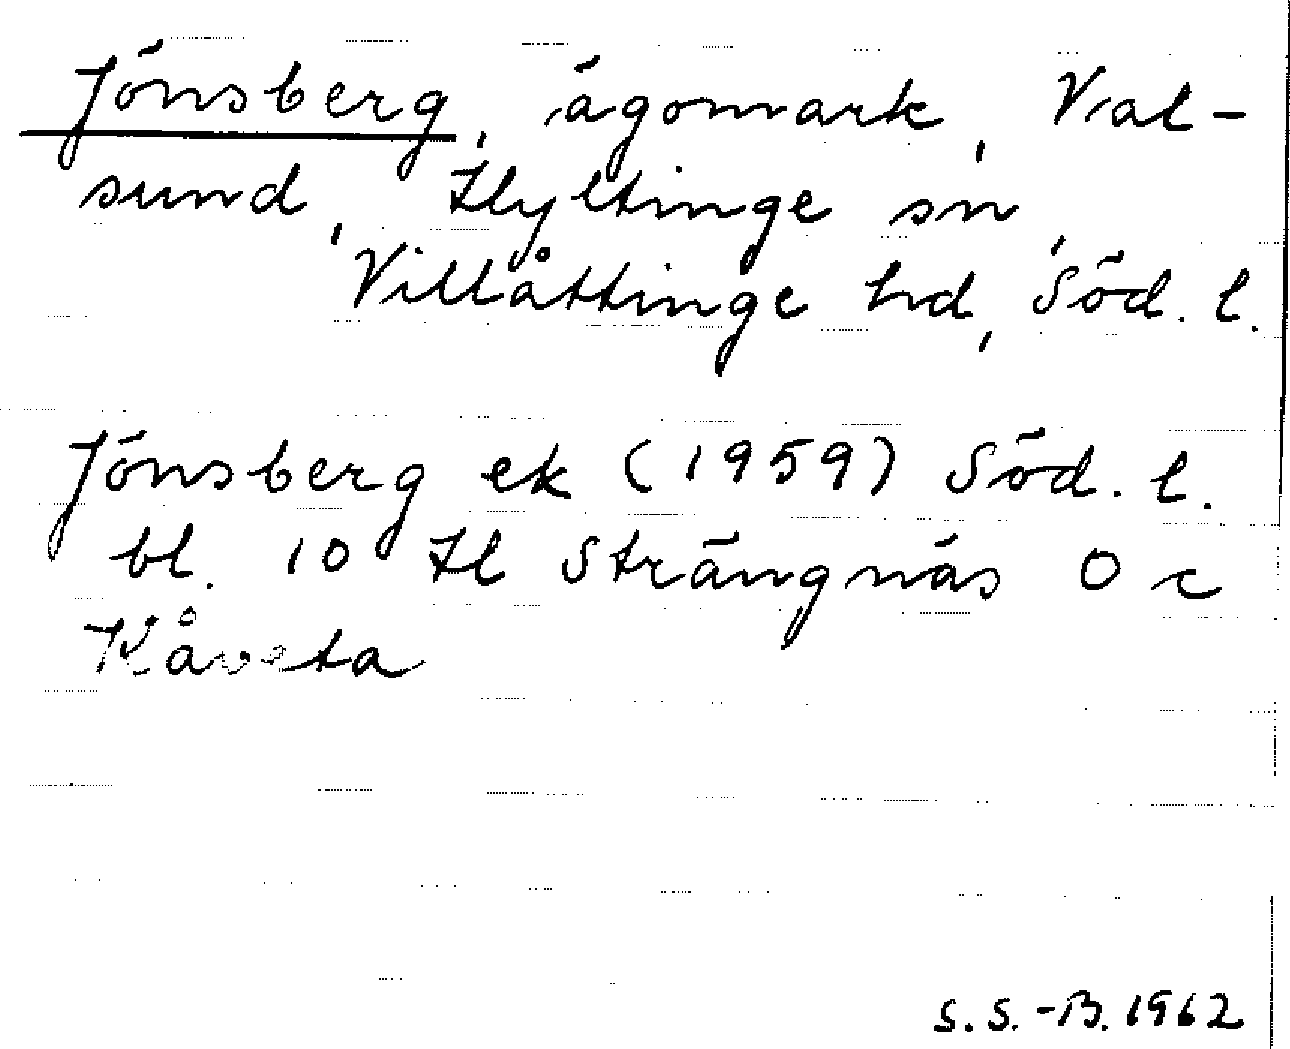 Jönsberg, ägomark, Val-
sund, Hyltinge sn,
Villåttinge hd, Söd. l.
Jönsberg ek (1959) Söd. l.
bl. 10 H1 Strängnäs O c
Kåveta
S. S.-B. 1962